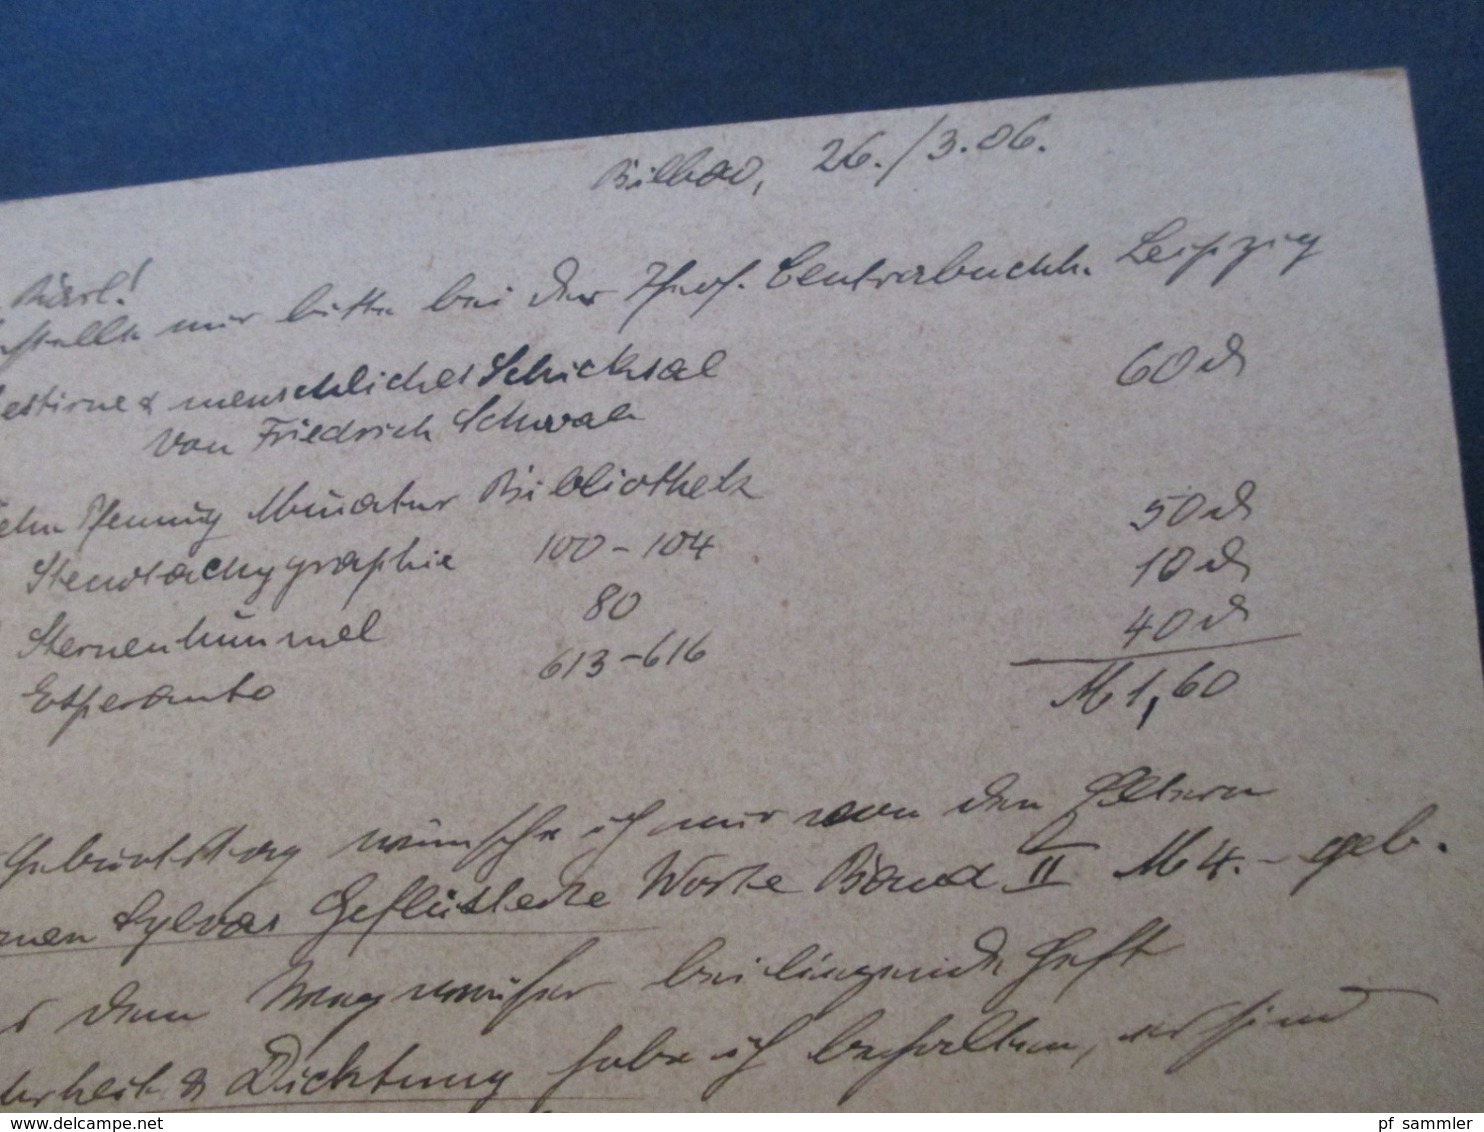 Bilbao, 26./3.06.
Karl!
mir bitte bei der Centralbuchh. Leipzig
menschliches Schicksal 60 d
von Friedrich Schwab
Pfennig Miniatur Bibliothek
Stenotachygraphie 100-104 50 d
Sternenhimmel 80 10 d
Esperanto 613-616 40 d
M 1,60
Geburtstag wünsche ich mir von den Eltern
Sylvas Geflüsterte Worte Band II M 4.- geb.
dem beiliegende Heft
& Dichtung habe ich behalten, es sind
www.delcampe.net
pf_sammler